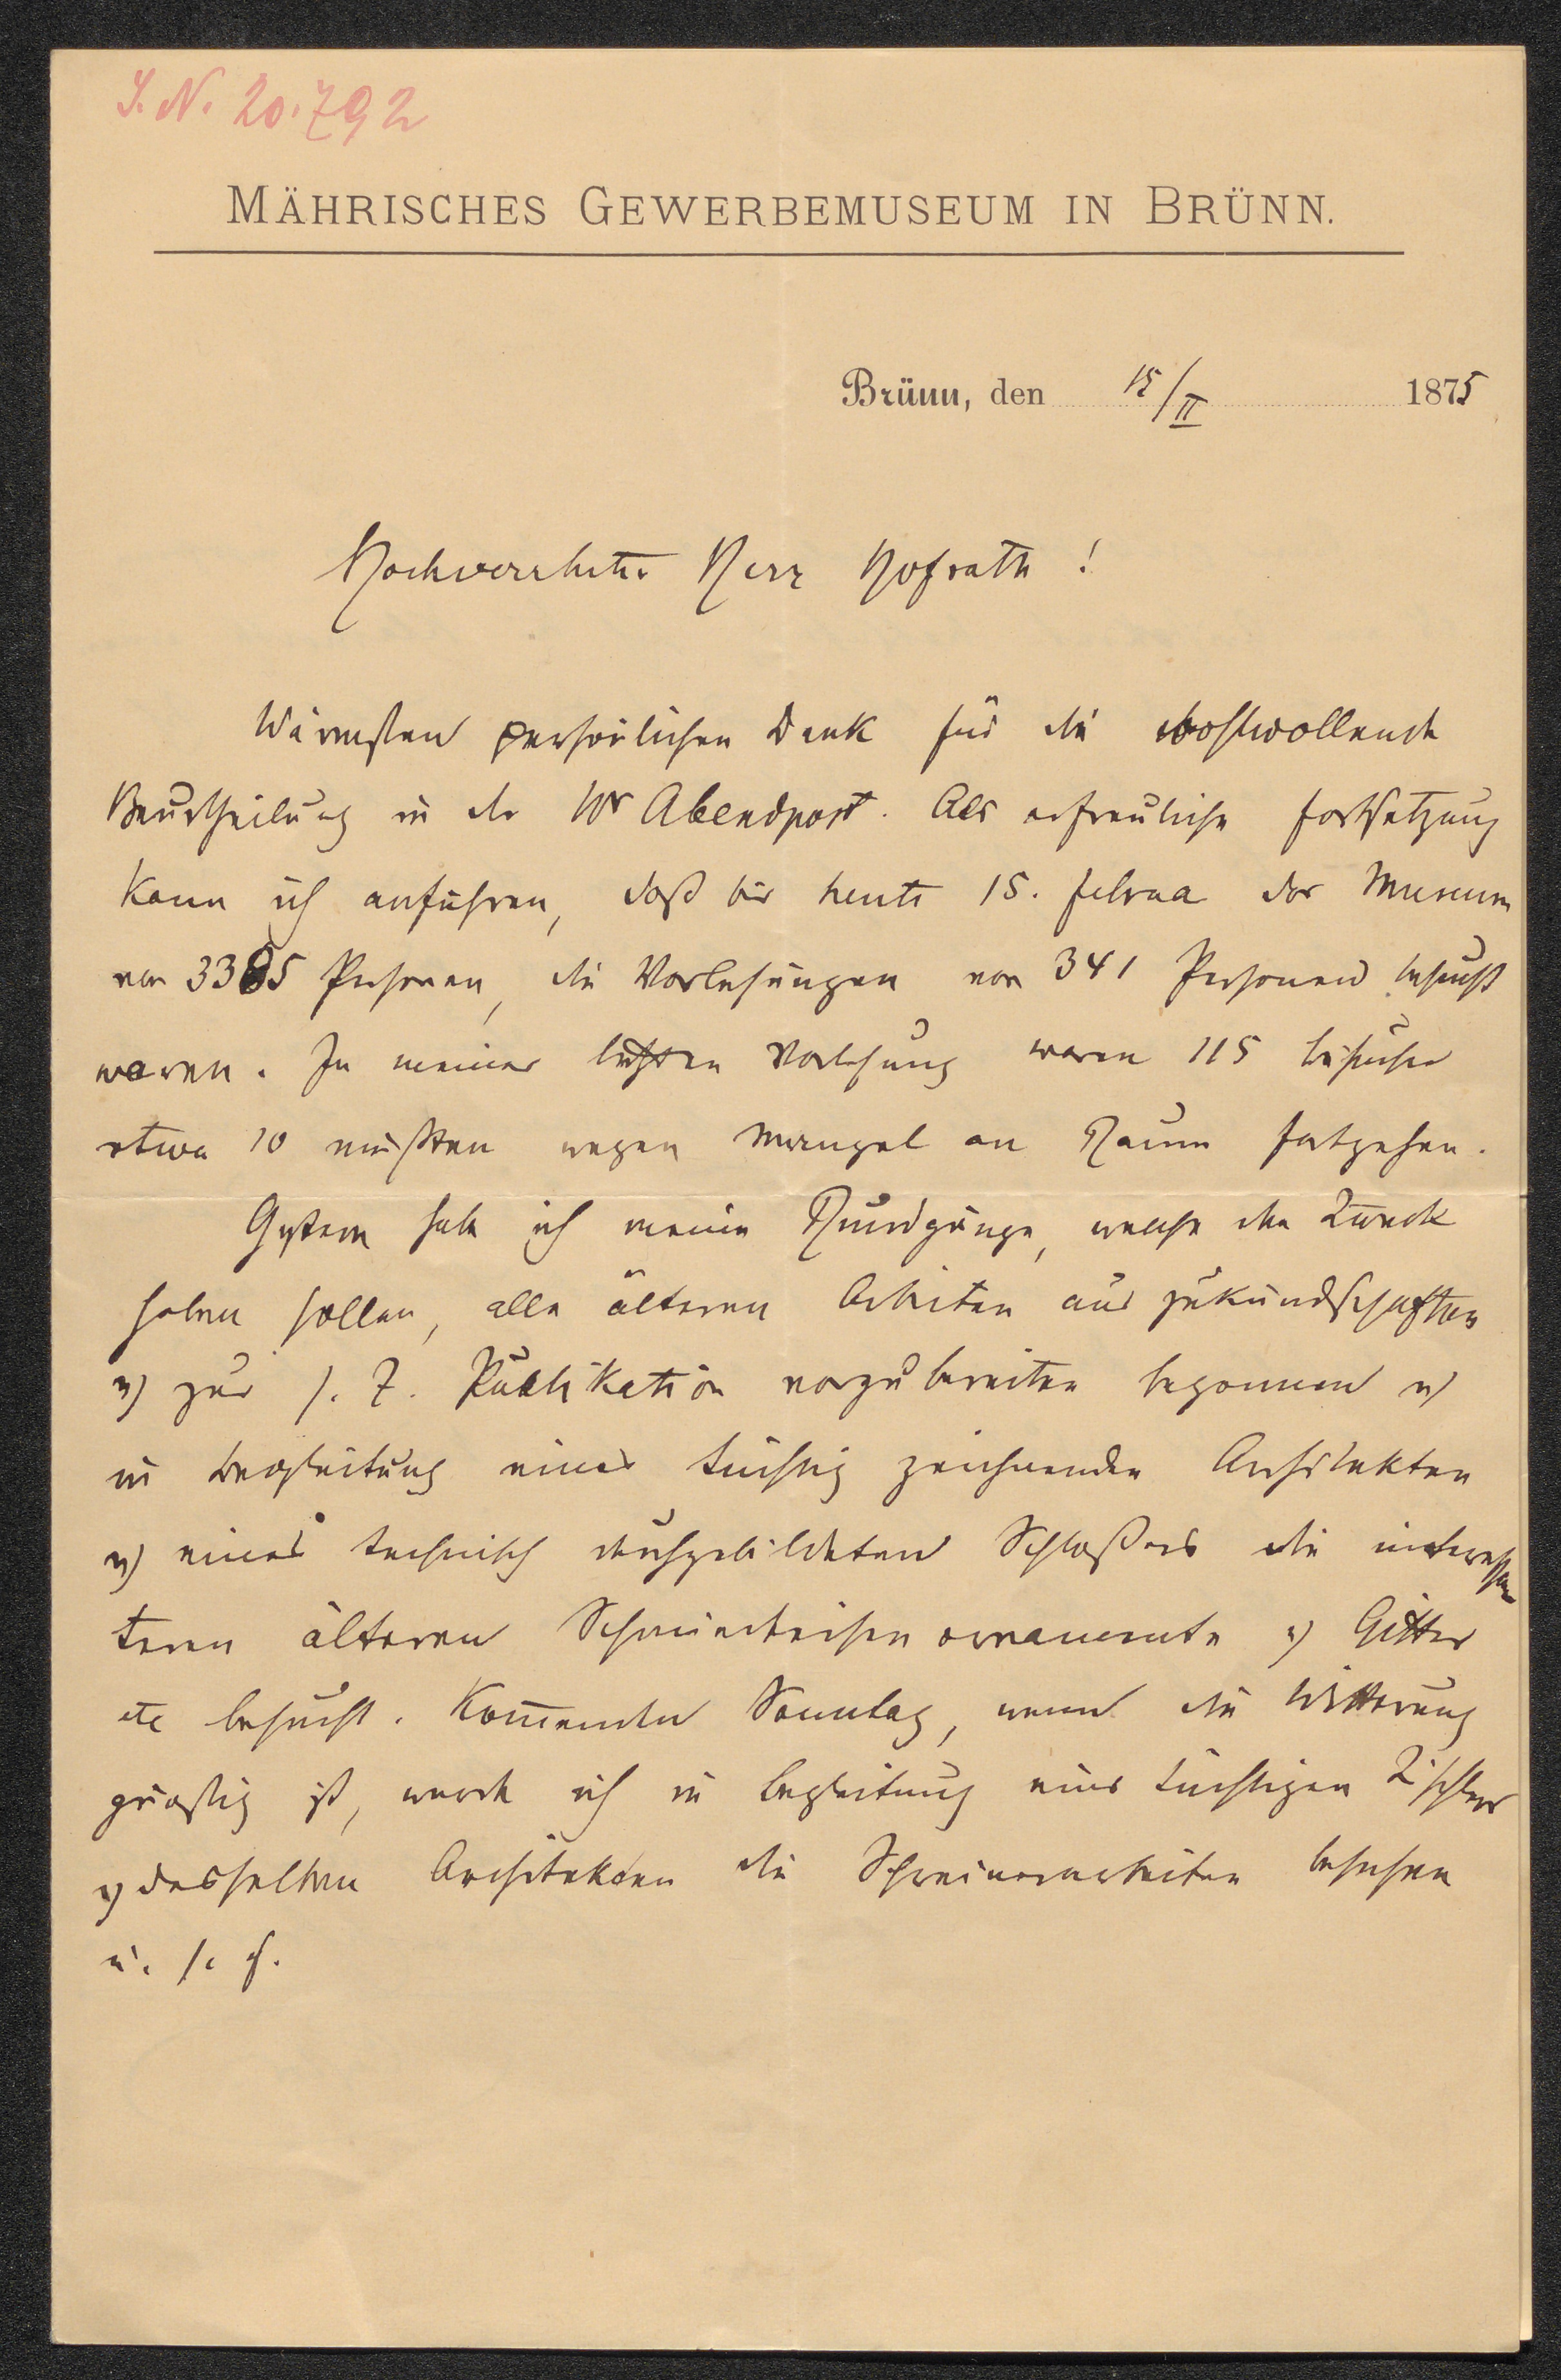 J. N. 20.792
MÄHRISCHES GEWERBEMUSEUM IN BRÜNN.
Brünn, den 15/II 1875
Hochverehrter Herr Hofrath!
Wärmsten persönlichen Dank für die wohlwollende
Beurtheilung in der Wr Abendpost. Als erfreuliche Fortsetzung
kann ich anführen, daß bis heute 15. Februar das Museum
von 3385 Personen, die Vorlesungen von 341 Personen besucht
waren. In meiner letzten Vorlesung waren 115 Besucher
etwa 10 mußten wegen Mangel an Raum fortgehen.
Gestern habe ich meine Rundgänge, welche den Zweck
haben sollen, alle älteren Arbeiten aus zukundschaften
u) zur s. Z. Publikation vorzubereiten begonnen u)
in Begleitung eines tüchtig zeichnenden Architekten
u) eines technisch durchgebildeten Schloßers die interessan
teren älteren Schmiedeisenornamente u) Gitter
etc besucht. Kom̄enden Sonntag, wenn die Witterung
günstig ist, werde ich in Begleitung eines tüchtigen Tischlers
u) desselben Architekten die Schreinerarbeiten besehen
u. s. f.